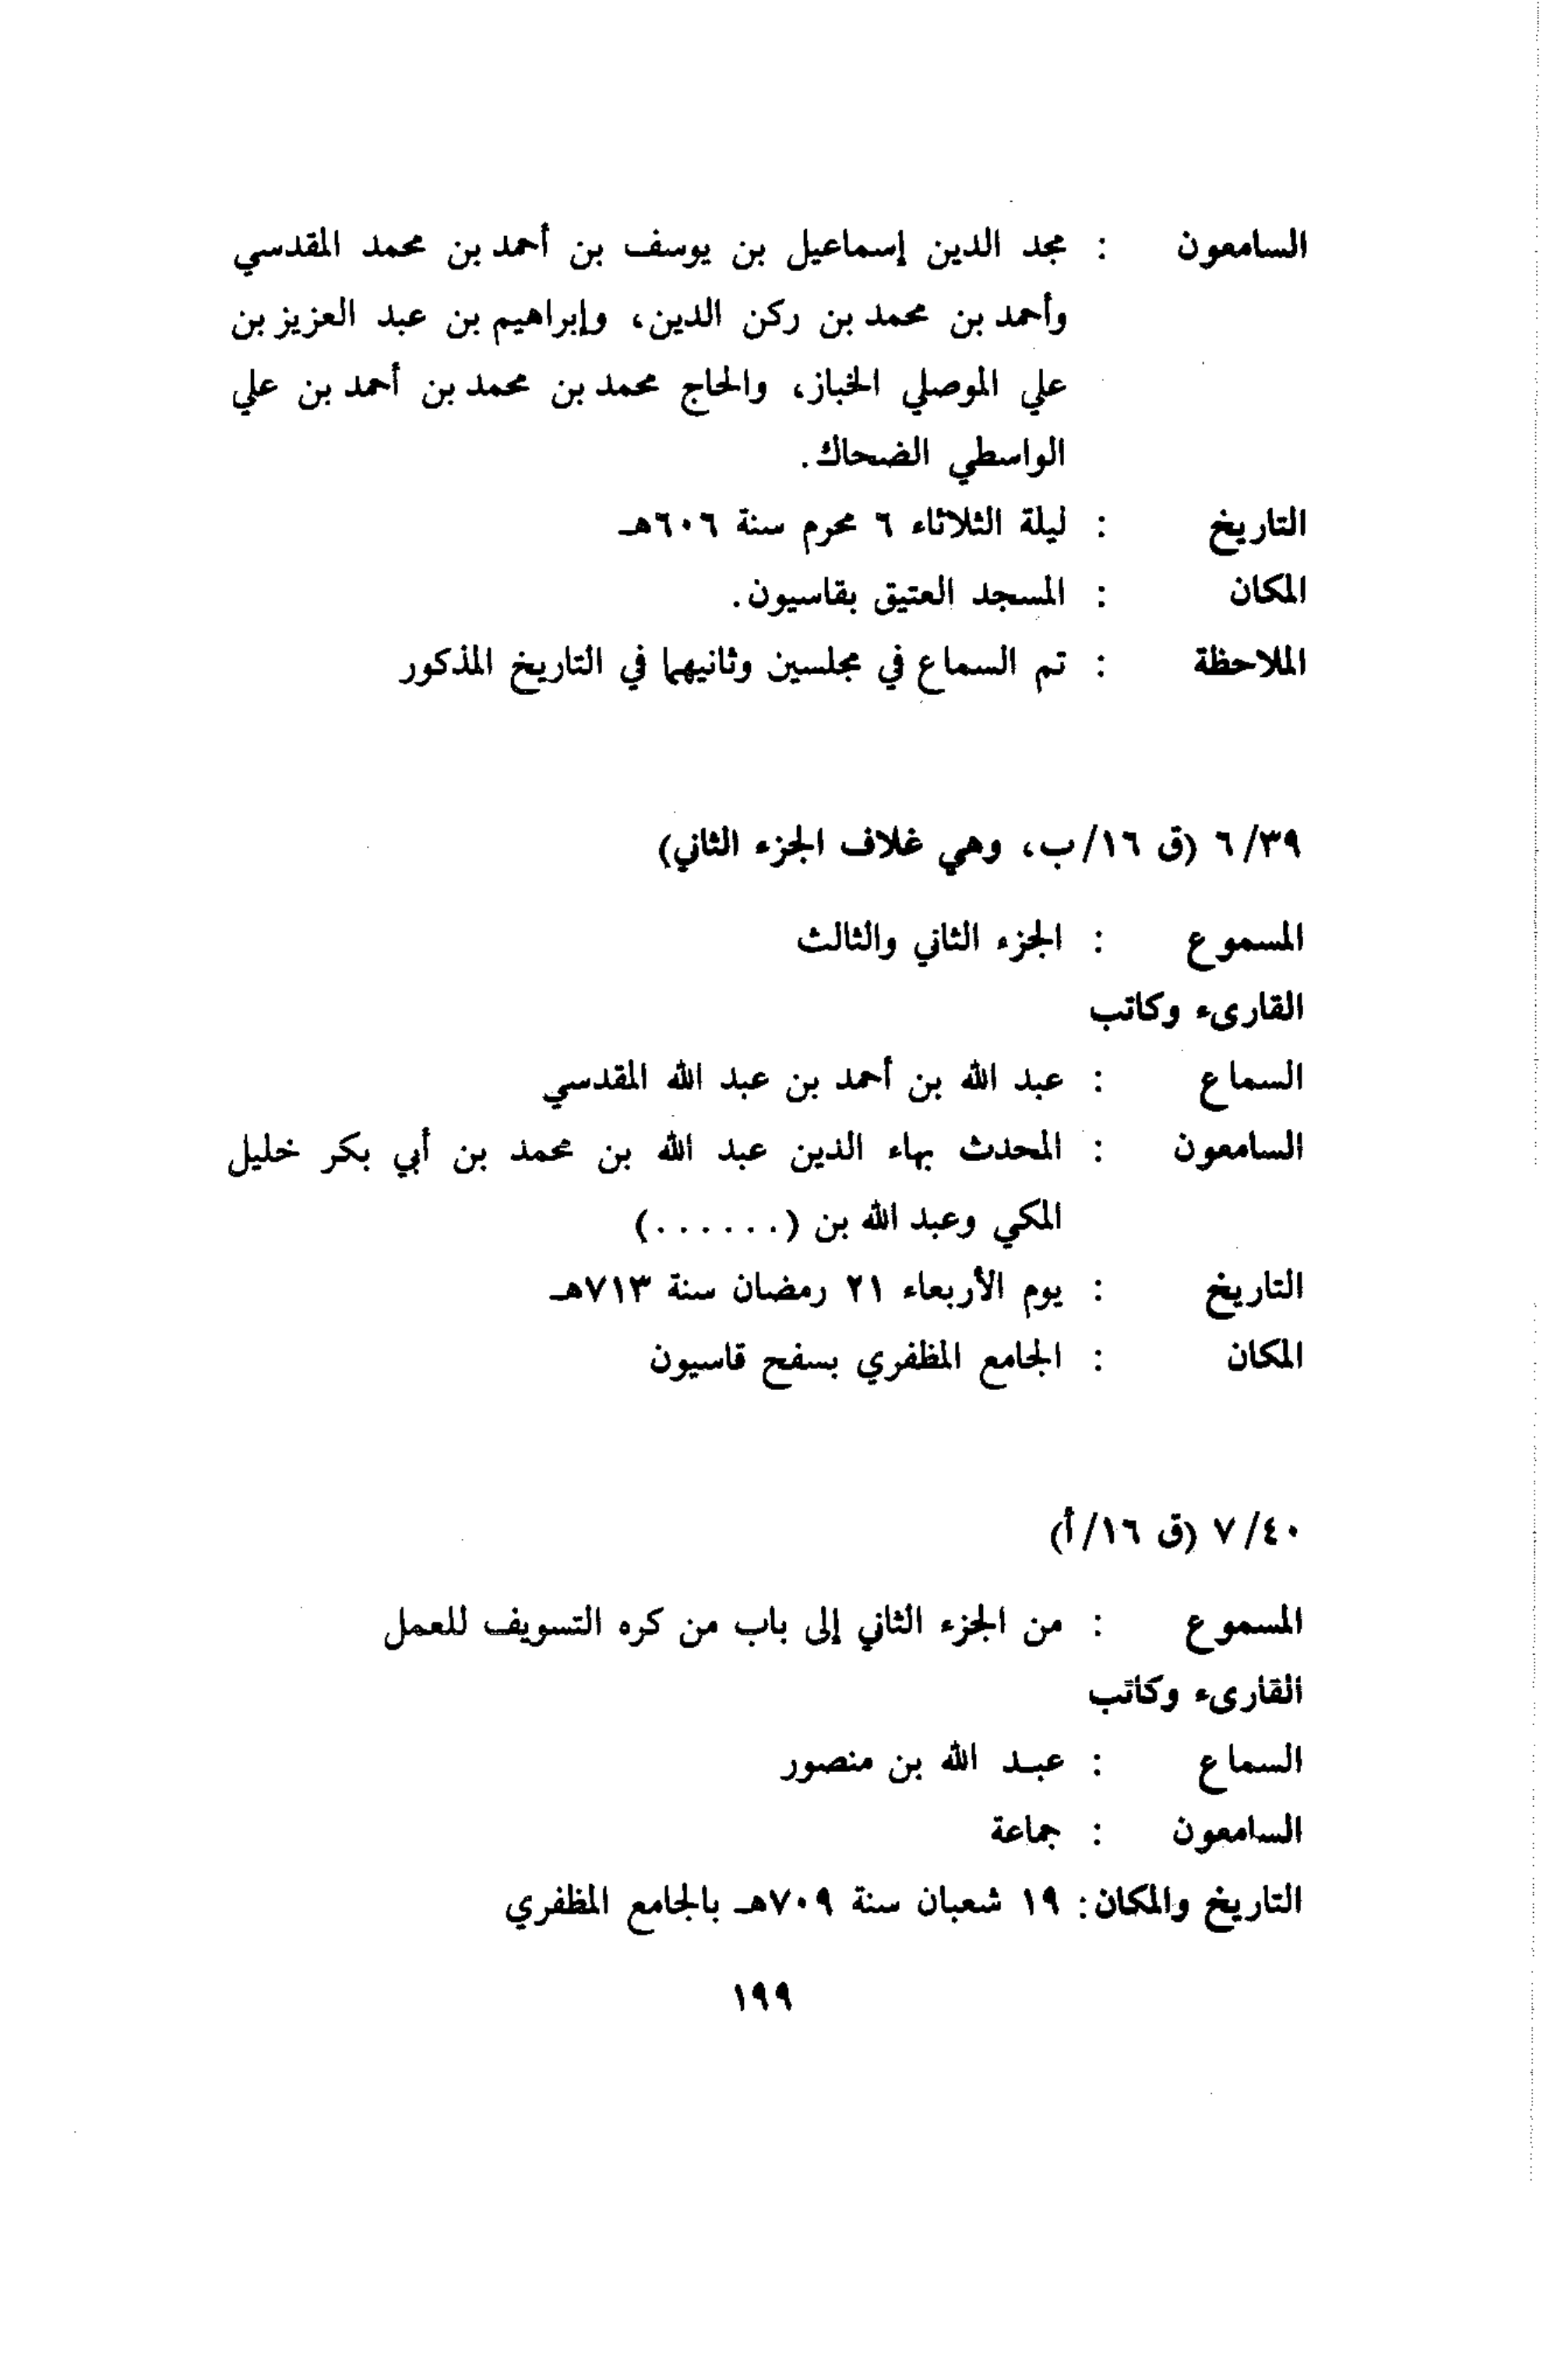 السامعون : مجد الدين إسماعيل بن يوسف بن أحمد بن محمد المقدسي
وأحمد بن محمد بن ركن الدين، وإبراهيم بن عبد العزيز بن
علي الموصلي الخباز، والحاج محمد بن محمد بن أحمد بن علي
الواسطي الضحاك.
التاريخ : ليلة الثلاثاء ٦ محرم سنة ٦٠٦هـ
المكان : المسجد العتيق بقاسيون.
الملاحظة : تم السماع في مجلسين وثانيهما في التاريخ المذكور
٦/٣٩ (ق ١٦/ب، وهي غلاف الجزء الثاني)
المسموع : الجزء الثاني والثالث
القارىء وكاتب
السماع : عبد الله بن أحمد بن عبد الله المقدسي
السامعون : المحدث بهاء الدين عبد الله بن محمد بن أبي بكر خليل
المكي وعبد الله بن (......)
التاريخ : يوم الأربعاء ٢١ رمضان سنة ٧١٣هـ
المكان : الجامع المظفري بسفح قاسيون
٧/٤٠ (ق ١٦/أ)
المسموع : من الجزء الثاني إلى باب من كره التسويف للعمل
القارىء وكاتب
السماع : عبد الله بن منصور
السامعون : جماعة
التاريخ والمكان: ١٩ شعبان سنة ٧٠٩هـ بالجامع المظفري
١٩٩